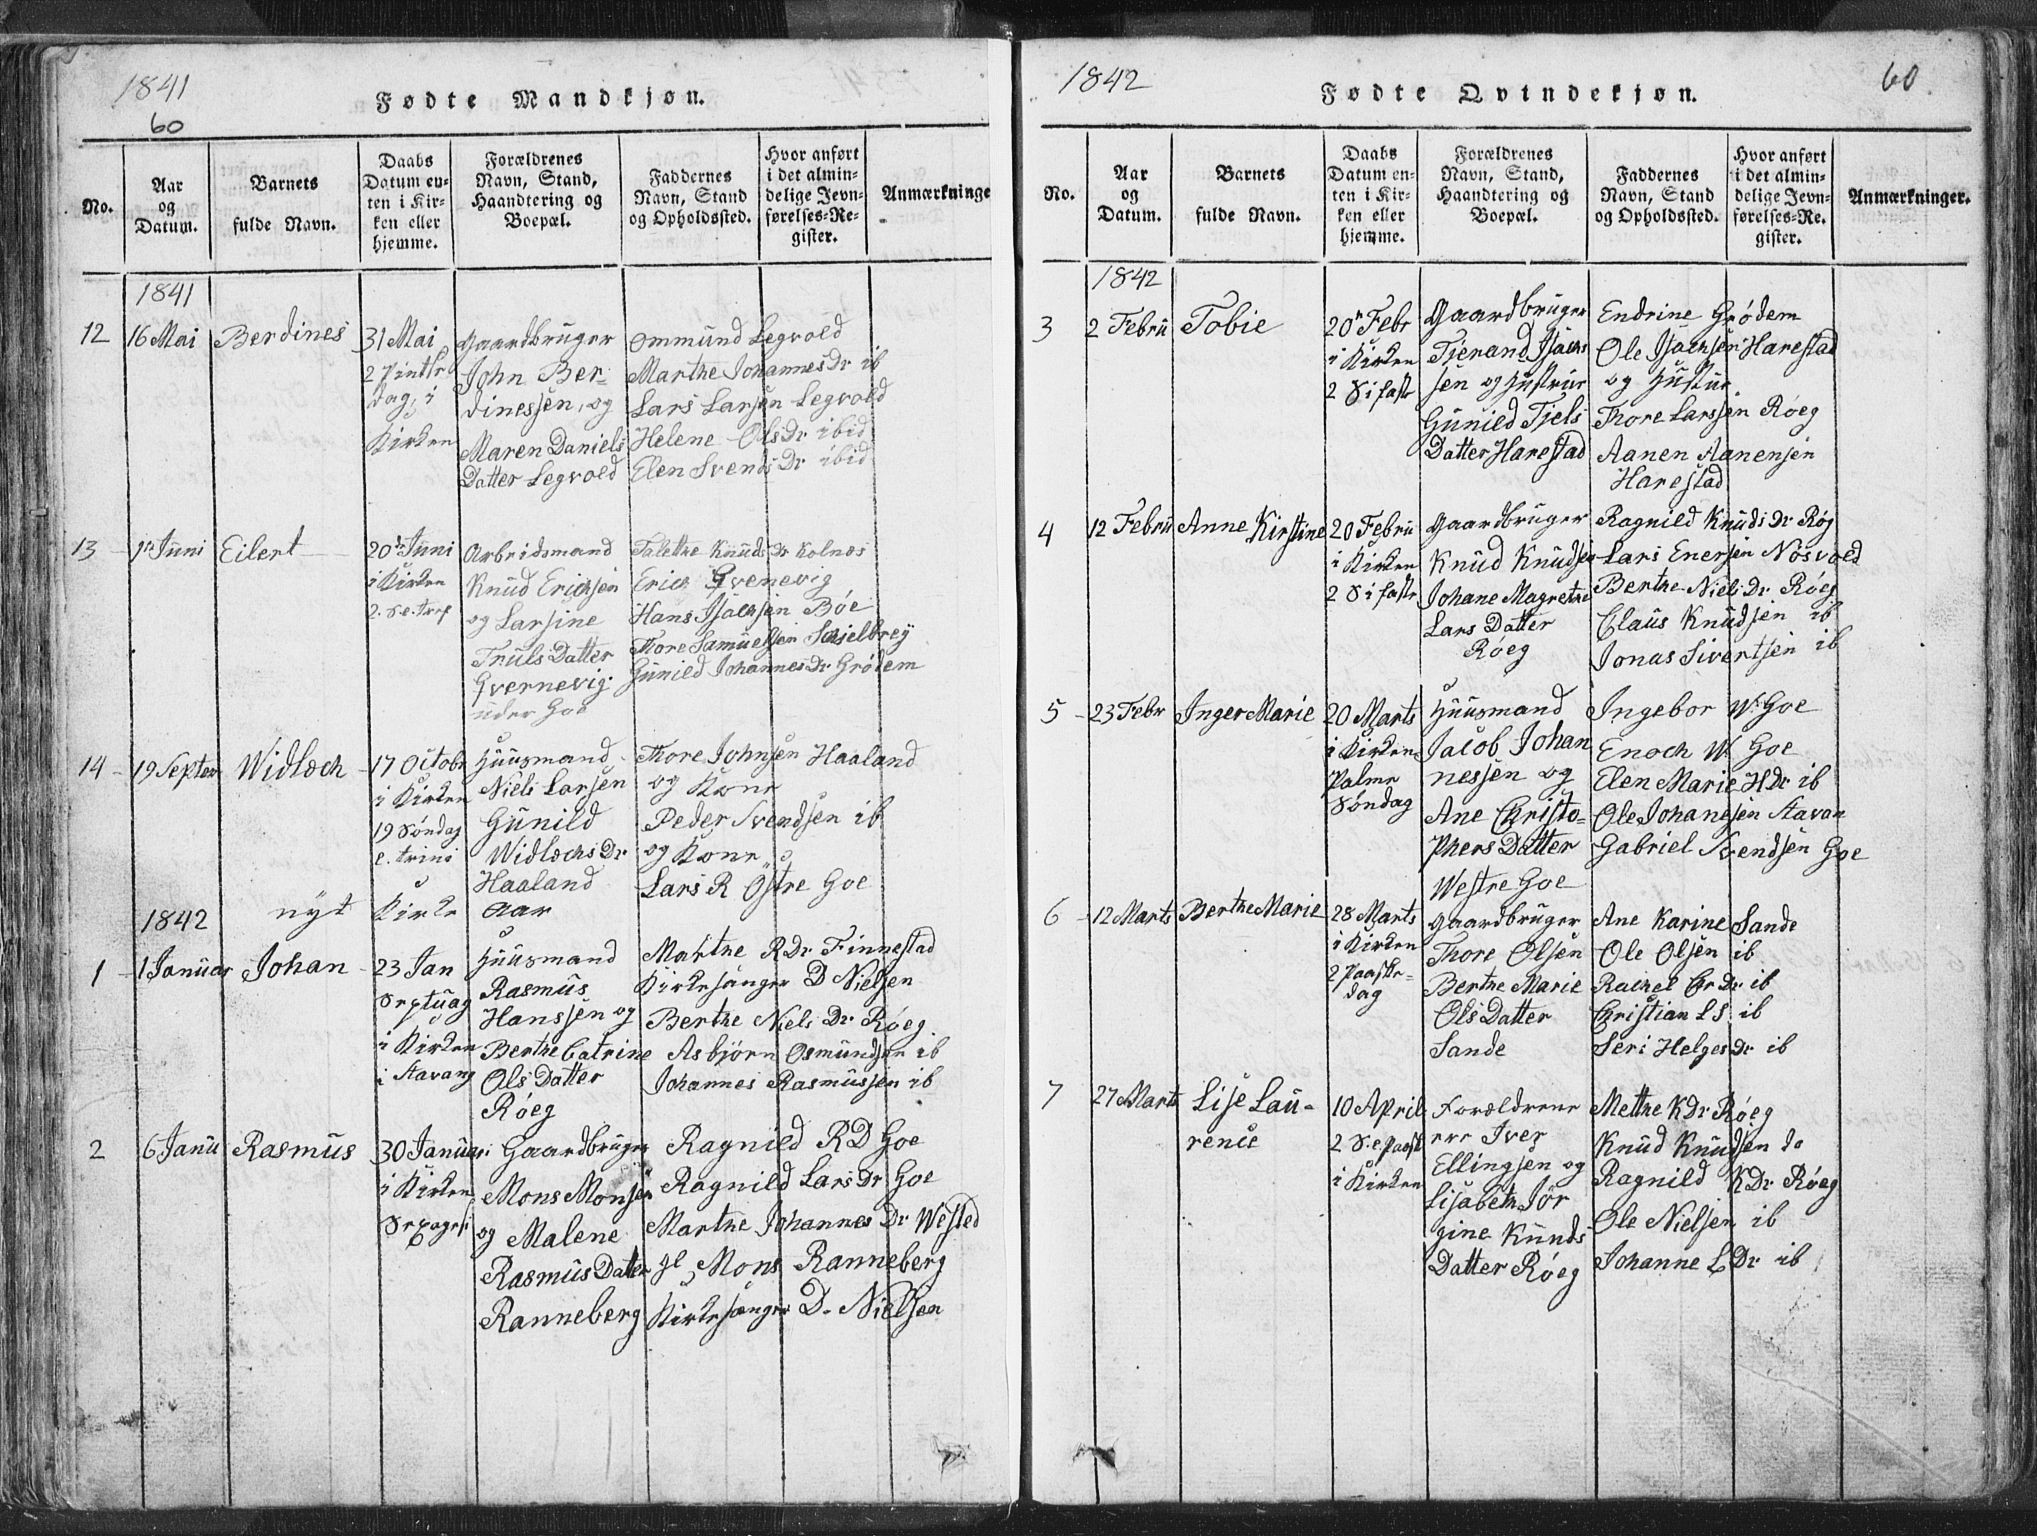 1841
60
Fødte Mandkjøn.
No.
Aar
og
Datum.
Barnets
fulde Navn.
Daabs
Datum en-
ten i Kir-
ken eller
hjemme.
Forældrenes
Navn, Stand,
Haandtering og
Boepæl.
Faddernes
Navn, Stand
og Opholdssted.
Hvor anført
i det almin-
delige Jevn-
førelses-Re-
gister.
Anmærkninge
1841
12
16 Mai
Berdines
31 Mai
2 Pintse
dag, i
Kirken
Gaardbruger
John Ber-
dinessen, og
Maren Daniels
Datter Legvold
Ommund Legvold
Marthe JohannesDr ib
Lars Larsen Legvold
Helene OlsDr ibid
Elen SvendsDr ibid
13
Juni
Eilert
20de Juni
i Kirken
2. S. e. tref
Arbeidsmand
Knud Erichsen
og Larsine
Truls Datter
Qvernevig
under Goe
Talethe Knuds Dr Kolnes
Erich Qvenevig
Hans Isachsen Bøe
Thore Samuelsen Skielbrey
Gunild Johannes Dr Grødem
14
19 Septer
Widloch
17 Octobr
i Kirken
19 Søndag
e. trini
Huusmand
Niels Larsen
Gunild
Widlochs Dr
Haaland
Thore Johnsen Haaland
og Kone
Peder Svendsen ib
og Kone
Lars R Østre Goe
1842 nyt Kirke Aar
1
1 Januar
Johan
23 Jan
Septuag
i Kirken
i Stavang
Huusmand
Rasmus
Hanssen og
Berthe Catrine
Ols Datter
Røeg
Marthe RDr Finnestad
Kirkesanger D Nielsen
Berthe Niels Dr Røeg
Asbjørn Osmundsen ib
Johannes Rasmussen ib
2
6 Janu
Rasmus
30 Januar
i Kirken
Sexages
Gaardbruger
Mons Monsen
og Malene
Rasmus Datter
Ranneberg
Ragnild RD Goe
Ragnild Lars Dr Goe
Marthe Johannes Dr Wested
gl Mons Ranneberg
Kirkesanger D. Nielsen
1842
60
Fødte Qvindekjøn.
No.
Aar
og
Datum.
Barnets
fulde Navn.
Daabs
Datum en-
ten i Kir-
ken eller
hjemme.
Forældrenes
Navn, Stand,
Haandtering og
Boepæl.
Faddernes
Navn, Stand
og Opholdssted.
Hvor anført
i det almin-
delige Jevn-
førelses-Re-
gister.
Anmærkninger.
1842
3
2 Febru
Tobie
20 Febr
i Kirken
2 S i faste
Gaardbruger
Tjerand Isach
sen og Hustrue
Gunild Tjels
Datter Harestad
Endrine Grødem
Ole Isachsen Harestad
og Hustue
Thore Larssen Røeg
Aanen Aanensen
Harestad
4
12 Febru
Anne Kirstine
20 Febru
i Kirken
2 S i faste
Gaardbruger
Knud Knudsen
Johane Magrethe
Lars Datter
Røeg
Ragnild Knuds Dr Røg
Lars Enersen Nøsvold
Berthe Niels Dr Røeg
Claus Knudsen ib
Jonas Sivertsen ib
5
23 Febr
Inger Marie
20 Marts
i Kirken
Palme
Søndag
Huusmand
Jacob Johan
nessen og
Ane Christo-
phers Datter
Westre Goe
Ingebor W. Goe
Enoch W. Goe
Elen Marie HDr ib
Ole Johanesen Stavan
Gabriel Svendsen Goe
6
12 Marts
Berthe Marie
28 Marts
i Kirken
2 Paaske-
dag
Gaardbruger
Thore Olsen
Berthe Marie
Ols Datter
Sande
Ane Karine Sande
Ole Olsen ib
Rachel Er Dr ib
Christian L S. ib
Seri Helges Dr ib
7
27 Marts
Lise Lau-
rence
10 April
2 S. e. Paask
i Kirken
Forældrene
ere Iver
Ellingsen og
Lisabeth Jør
gine Knuds
Datter Røeg
Methe KDr Røeg
Knud Knudsen do
Ragnild KDr Røeg
Ole Nielsen ib
Johanne L Dr ib